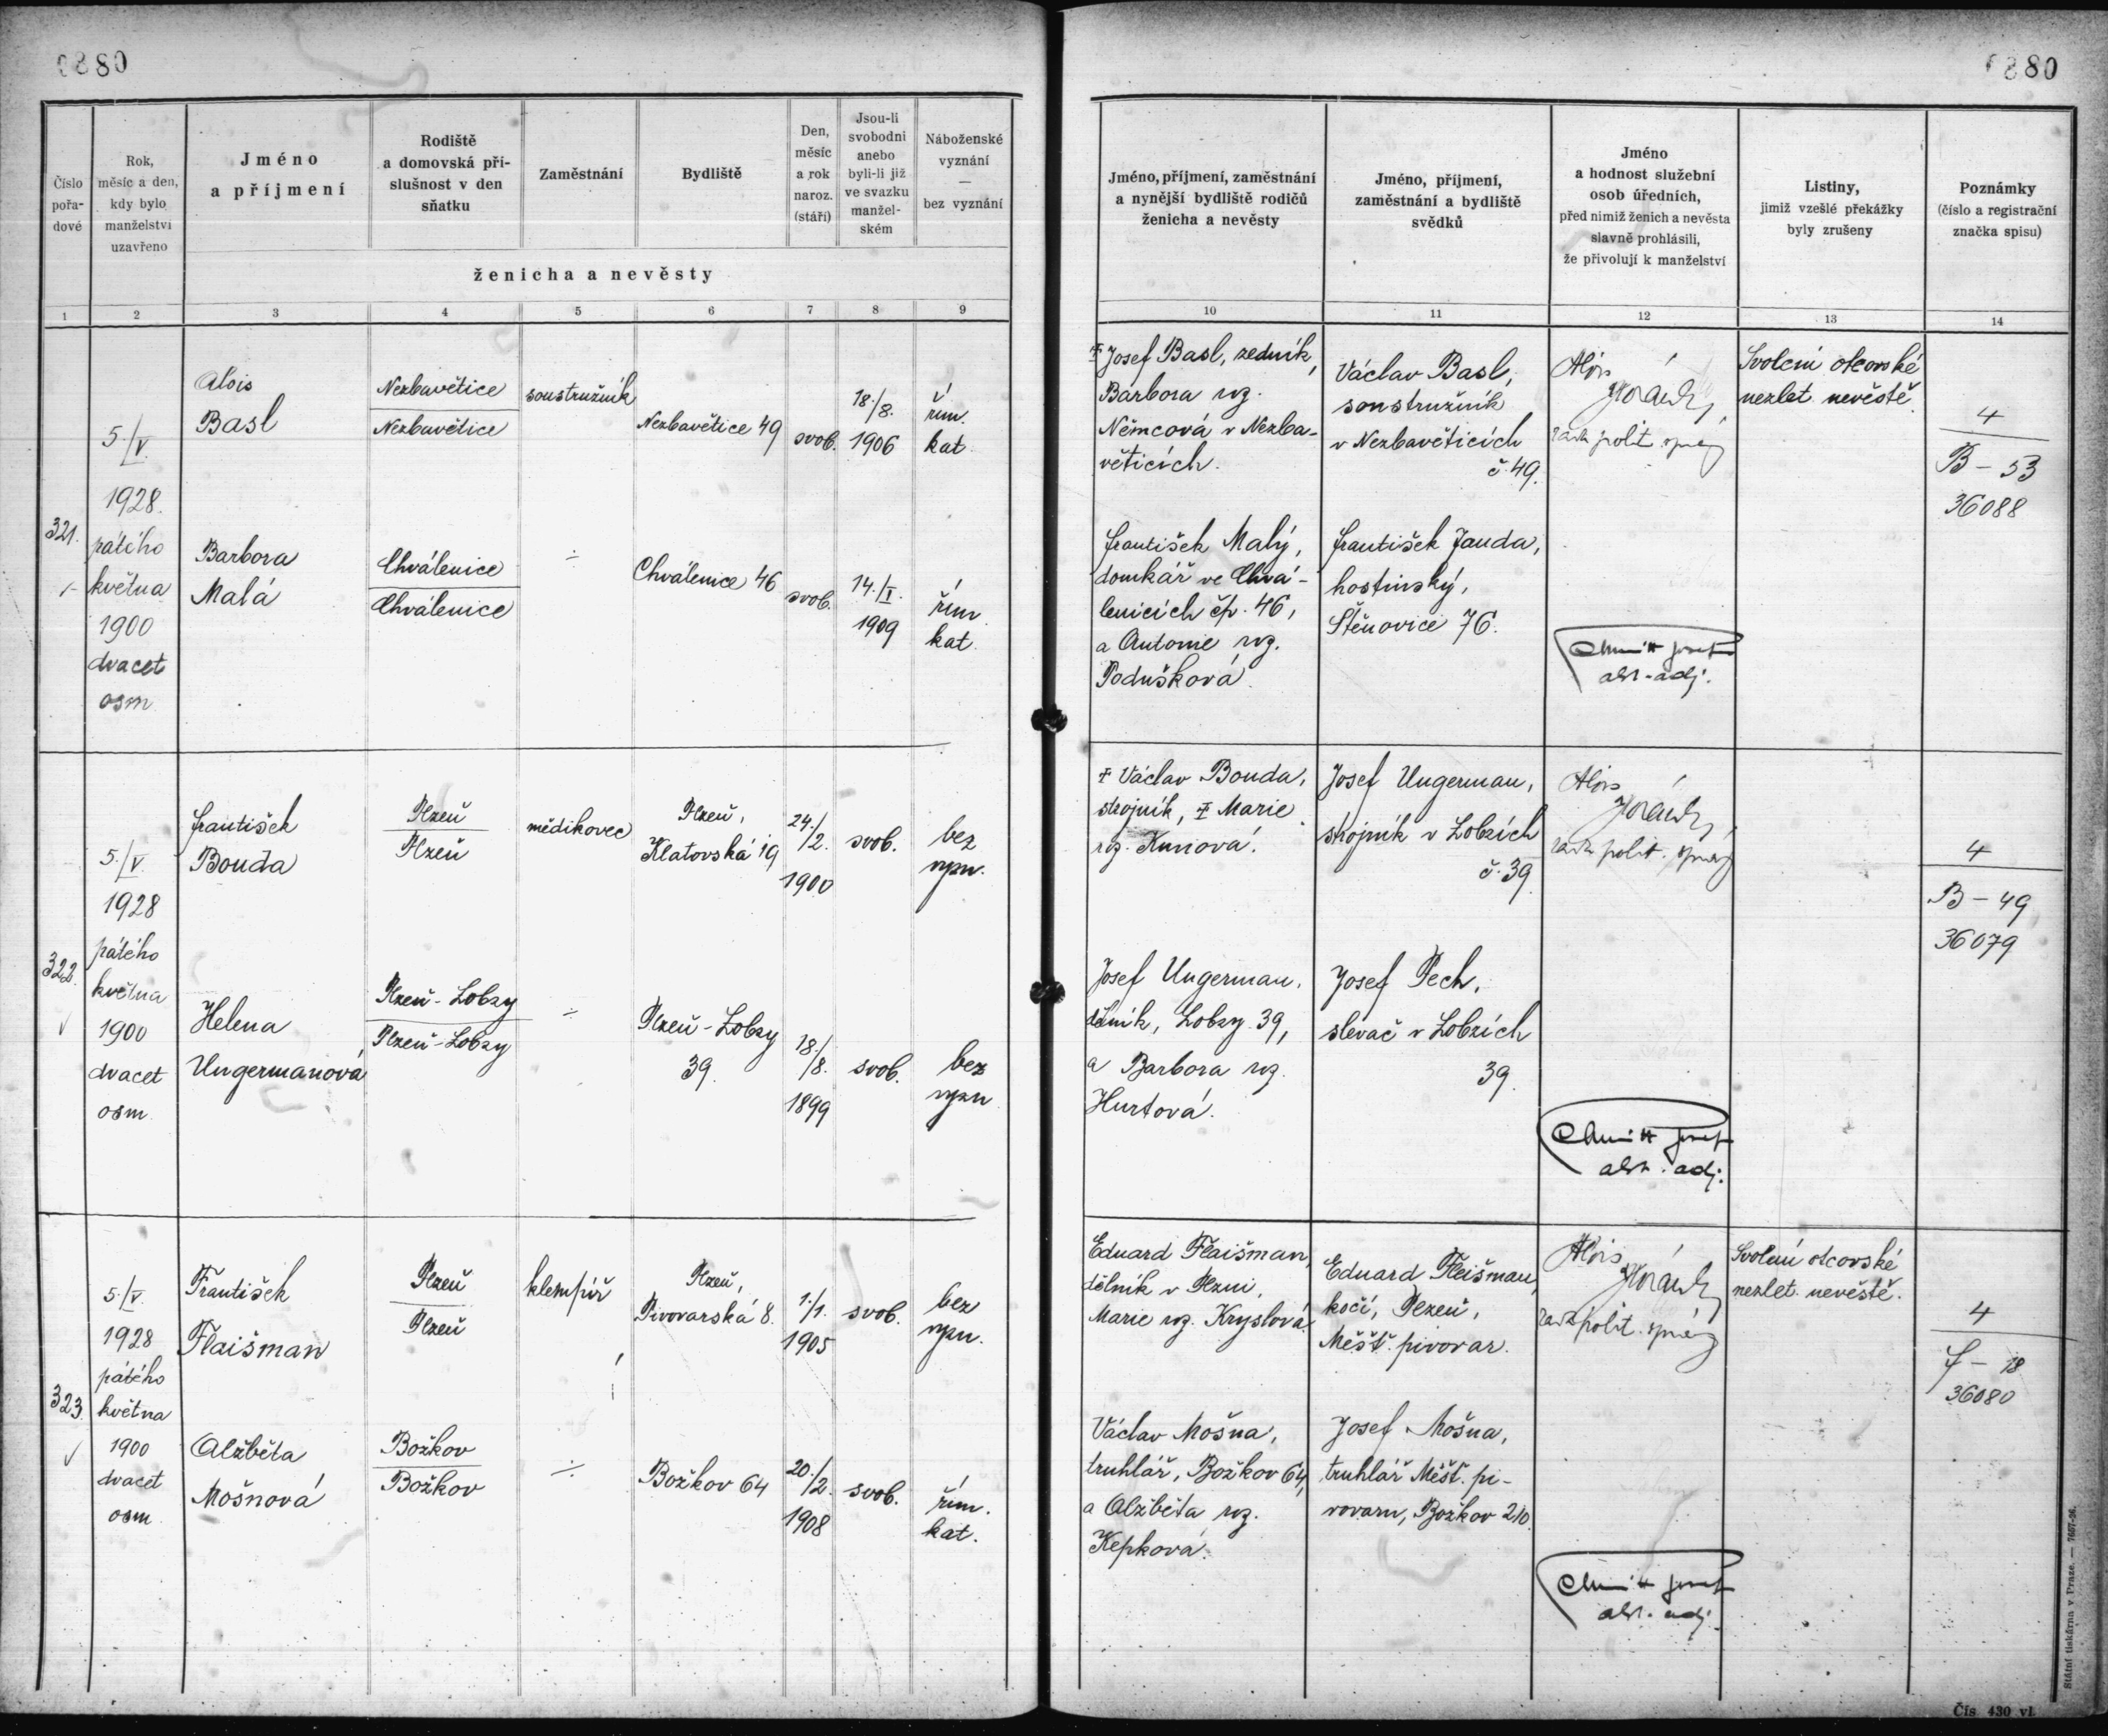 0880
0880
Číslo pořa- dové
Rok, měsíc a den, kdy bylo manželství uzavřeno
Jméno a příjmení
Rodiště a domovská pří- slušnost v den sňatku
Zaměstnání
Bydliště
Den, měsíc a rok naroz. (stáří)
Jsou-li svobodni anebo byli-li již ve svazku manžel- ském
Náboženské vyznání — bez vyznání
ženicha a nevěsty
Jméno, příjmení, zaměstnání a nynější bydliště rodičů ženicha a nevěsty
Jméno, příjmení, zaměstnání a bydliště svědků
Jméno a hodnost služební osob úředních, před nimiž ženich a nevěsta slavně prohlásili, že přivolují k manželství
Listiny, jimiž vzešlé překážky byly zrušeny
Poznámky (číslo a registrační značka spisu)
1 2 3 4 5 6 7 8 9 10 11 12 13 14
321.
5./V.
1928.
pátého
května
1900
dvacet
osm
Alois
Basl
Nezbavětice
Nezbavětice
soustružník
Nezbavětice 49
svob.
18./8.
1906
řím.
kat.
Josef Basl, zedník,
Barbora roz.
Němcová v Nezba-
věticích.
Václav Basl,
soustružník
v Nezbavěticích
č. 49.
Alois
rada polit. správy
Svolení otcovské
nezlet. nevěstě.
4
B – 53
36088
Barbora
Malá
Chválenice
Chválenice
÷
Chválenice 46
svob.
14./I.
1909
řím.
kat.
František Malý,
domkář ve Chvá-
lenicích čp. 46,
a Antonie roz.
Podušková.
František Jauda,
hostinský,
Štěnovice 76.
Josef
adj.
322.
5./V.
1928
pátého
května
1900
dvacet
osm
František
Bouda
Plzeň
Plzeň
mědikovec
Plzeň,
Klatovská 19
24./2.
1900
svob.
bez
vyzn.
‡ Václav Bouda,
strojník, ‡ Marie
roz. Kunová.
Josef Ungerman,
strojník v Lobzích
č. 39
Alois
rada polit. správy
4
B – 49
36079
Helena
Ungermanová
Plzeň-Lobzy
Plzeň-Lobzy
÷
Plzeň-Lobzy
39.
18./8.
1899
svob.
bez
vyzn
Josef Ungerman,
dělník, Lobzy 39,
a Barbora roz.
Hurtová.
Josef Pech,
slevač v Lobzích
39.
Josef
adj.
323.
5./V.
1928
pátého
května
1900
dvacet
osm
František
Flaišman
Plzeň
Plzeň
klempíř
Plzeň,
Pivovarská 8.
1./1.
1905
svob.
bez
vyzn.
Eduard Flaišman,
dělník v Plzni,
Marie roz. Kryslová.
Eduard Fleišman,
kočí, Plzeň,
Měšť. pivovar.
Alois
rada polit. správy
Svolení otcovské
nezlet. nevěstě.
4
F – 18
36080
Alžběta
Mošnová
Božkov
Božkov
÷
Božkov 64
20./2.
1908
svob.
řím.
kat.
Václav Mošna,
truhlář, Božkov 64,
a Alžběta roz.
Kepková.
Josef Mošna,
truhlář Měšť. pi-
vovaru, Božkov 210.
Josef
adj.
Státní tiskárna v Praze. — 7667-26.
Čís. 430 vl.